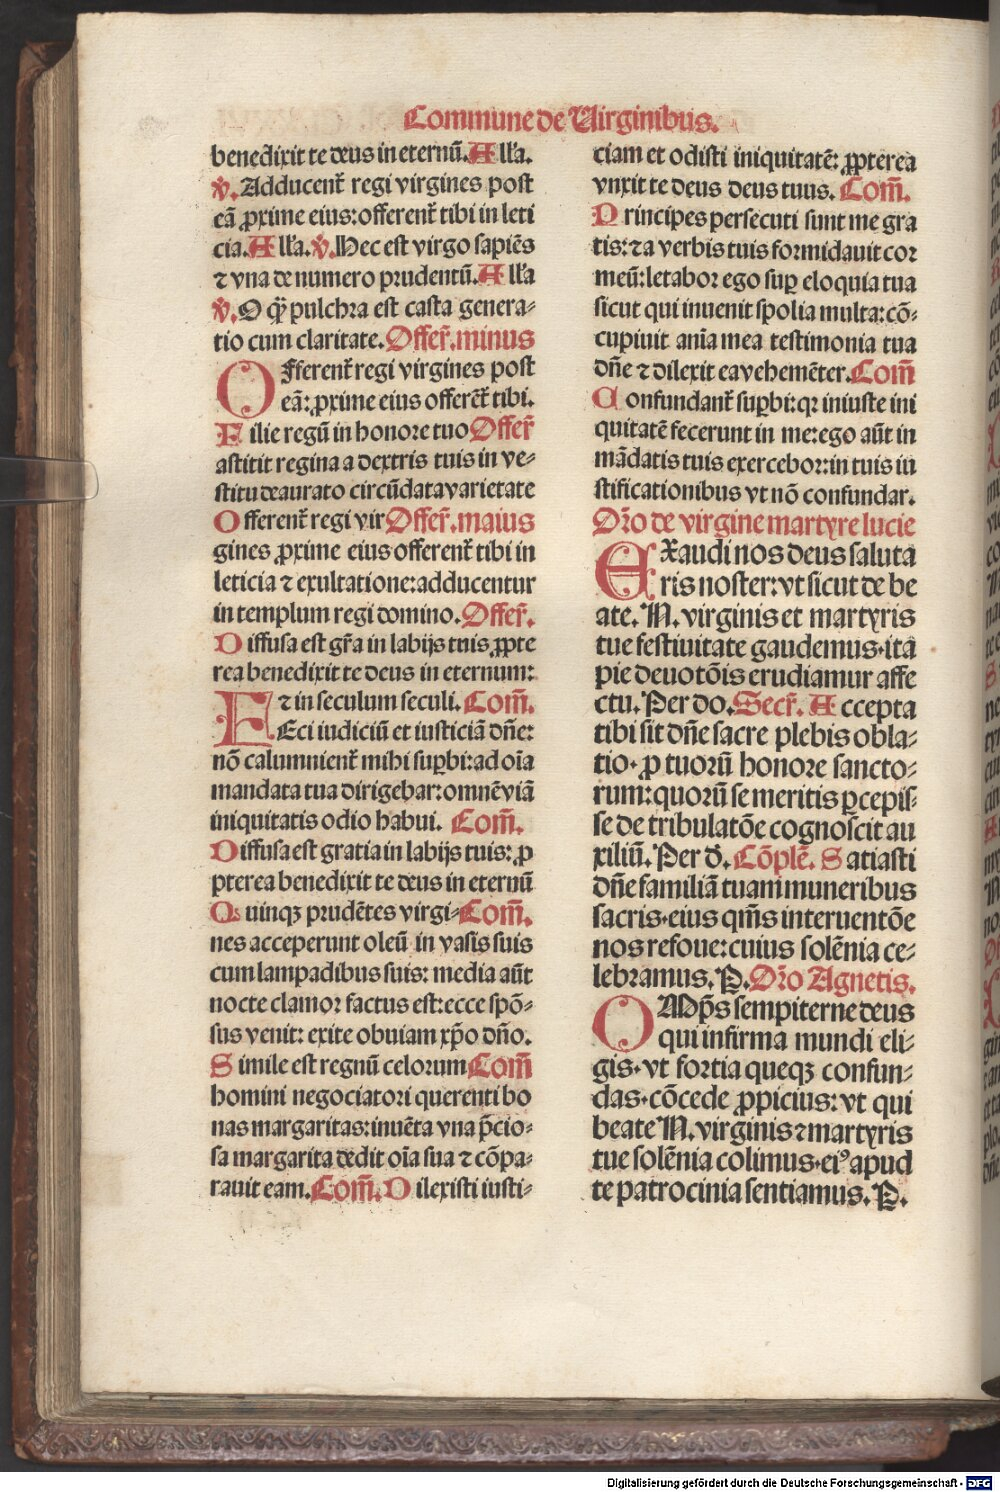 Commune de Uirginibus.
benedixit te deus in eternū. All'a.
v̄. Adducent᷑ regi virgines post
eā ꝓxime eius: offerent᷑ tibi in leti
cia. All'a. v̄. Hec est virgo sapiēs
⁊ vna de numero prudentū. All'a
v̄. O qͣ̄ pulchra est casta genera-
tio cum claritate. Offer᷑. minus
Offerent᷑ regi virgines post
eā: ꝓxime eius offerēt᷑ tibi.
Filie regū in honore tuo Offer᷑
astitit regina a dextris tuis in ve-
stitu deaurato circūdata varietate
Offerent᷑ regi vir Offer᷑. maius
gines ꝓxime eius offerent᷑ tibi in
leticia ⁊ exultatione: adducentur
in templum regi domino. Offer᷑.
Diffusa est gr̄a in labijs tuis ꝓpte
rea benedixit te deus in eternum:
Et in seculum seculi. Com̄.
Feci iudiciū et iusticiā dn̄e:
nō calumnient᷑ mihi suꝑbi: ad oīa
mandata tua dirigebar: omnē viā
iniquitatis odio habui. Com̄.
Diffusa est gratia in labijs tuis: ꝓ
pterea benedixit te deus in eternū
Quinqꝫ prudētes virgi- Com̄.
nes acceperunt oleū in vasis suis
cum lampadibus suis: media aūt
nocte clamor factus est: ecce spō-
sus venit: exite obuiam xp̄o dn̄o.
Simile est regnū celorum Com̄
homini negociatori querenti bo
nas margaritas: inuēta vna p̄cio-
sa margarita dedit oīa sua ⁊ cōpa-
rauit eam. Com̄. Dilexisti iusti-
ciam et odisti iniquitatē: ꝓpterea
vnxit te deus deus tuus. Com̄.
Principes persecuti sunt me gra
tis: ⁊ a verbis tuis formidauit cor
meū: letabor ego suꝑ eloquia tua
sicut qui inuenit spolia multa: cō-
cupiuit anīa mea testimonia tua
dn̄e ⁊ dilexit ea vehemēter. Com̄
Confundant᷑ suꝑbi: qꝛ iniuste ini
quitatē fecerunt in me: ego aūt in
mādatis tuis exercebor: in tuis iu
stificationibus vt nō confundar.
Or̄o de virgine martyre lucie
Exaudi nos deus saluta
ris noster: vt sicut de be
ate. N. virginis et martyris
tue festiuitate gaudemus. ita
pie deuotōis erudiamur affe
ctu. Per do. Secr᷑. Accepta
tibi sit dn̄e sacre plebis obla-
tio. ꝓ tuorū honore sancto-
rum: quorū se meritis ꝑcepis-
se de tribulatōe cognoscit au
xiliū. Per d̄. Cōplē. Satiasti
dn̄e familiā tuam muneribus
sacris. eius qm̄s interuentōe
nos refoue: cuius solēnia ce-
lebramus. P. Or̄o Agnetis.
OMp̄s sempiterne deus
qui infirma mundi eli-
gis. vt fortia queqꝫ confun-
das. cōcede ꝓpicius: vt qui
beate N. virginis ⁊ martyris
tue solēnia colimus. eiꝰ apud
te patrocinia sentiamus. P.
Digitalisierung gefördert durch die Deutsche Forschungsgemeinschaft - DFG